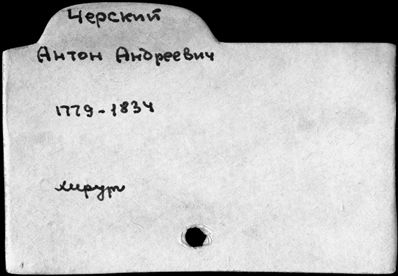 Черский
Антон Андреевич
1779-1834
хирург